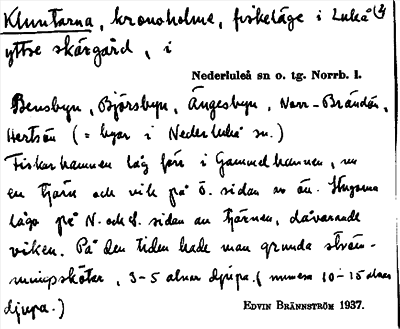 Kluntarna, kronoholme, fiskeläge i Luleå
yttre skärgård, i
Nederluleå sn o. tg. Norrb. l.
Bensbyn, Björsbyn, Ängesbyn, Norr-Brändön,
Hertsön (= byar i Nederluleå sn.)
Fiskarhamnen låg förr i Gammelhamnen, nu
en tjärn och vik på ö. sidan av ön. Stugorna
lågo på N. och S. sidan av tjärnen, dåvarande
viken. På den tiden hade man grunda ström-
mingsskötar, 3-5 alnar djupa. (numera 10-15 alnar
djupa.)
EDVIN BRÄNNSTRÖM 1937.